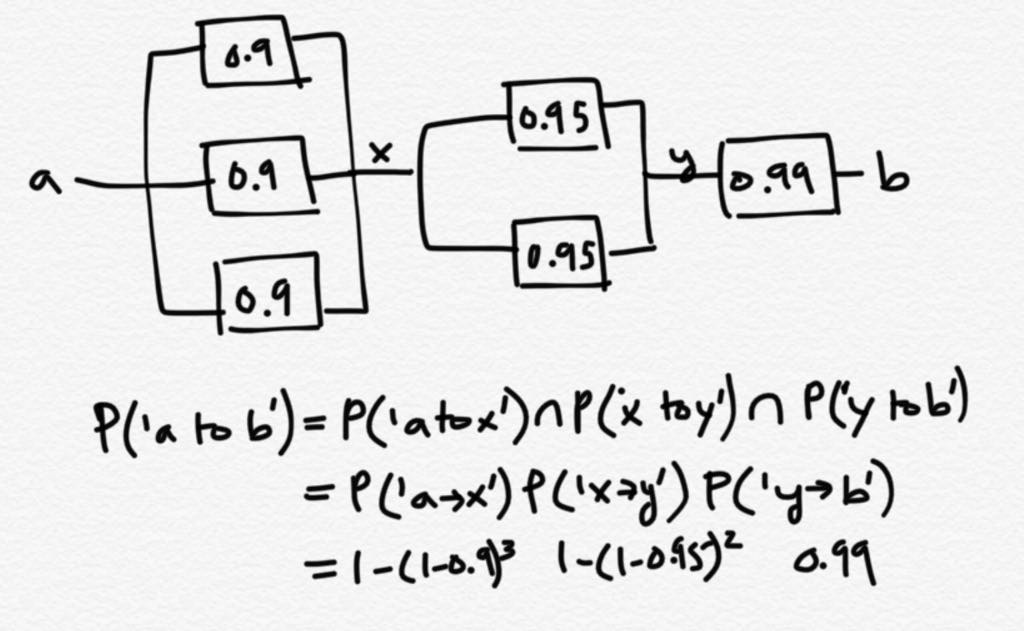 0.9
0.95
a 0.9 x y 0.99 b
0.95
0.9
P('a to b') = P('a to x') ∩ P('x to y') ∩ P('y to b')
= P('a→x') P('x→y') P('y→b')
= 1-(1-0.9)³ 1-(1-0.95)² 0.99